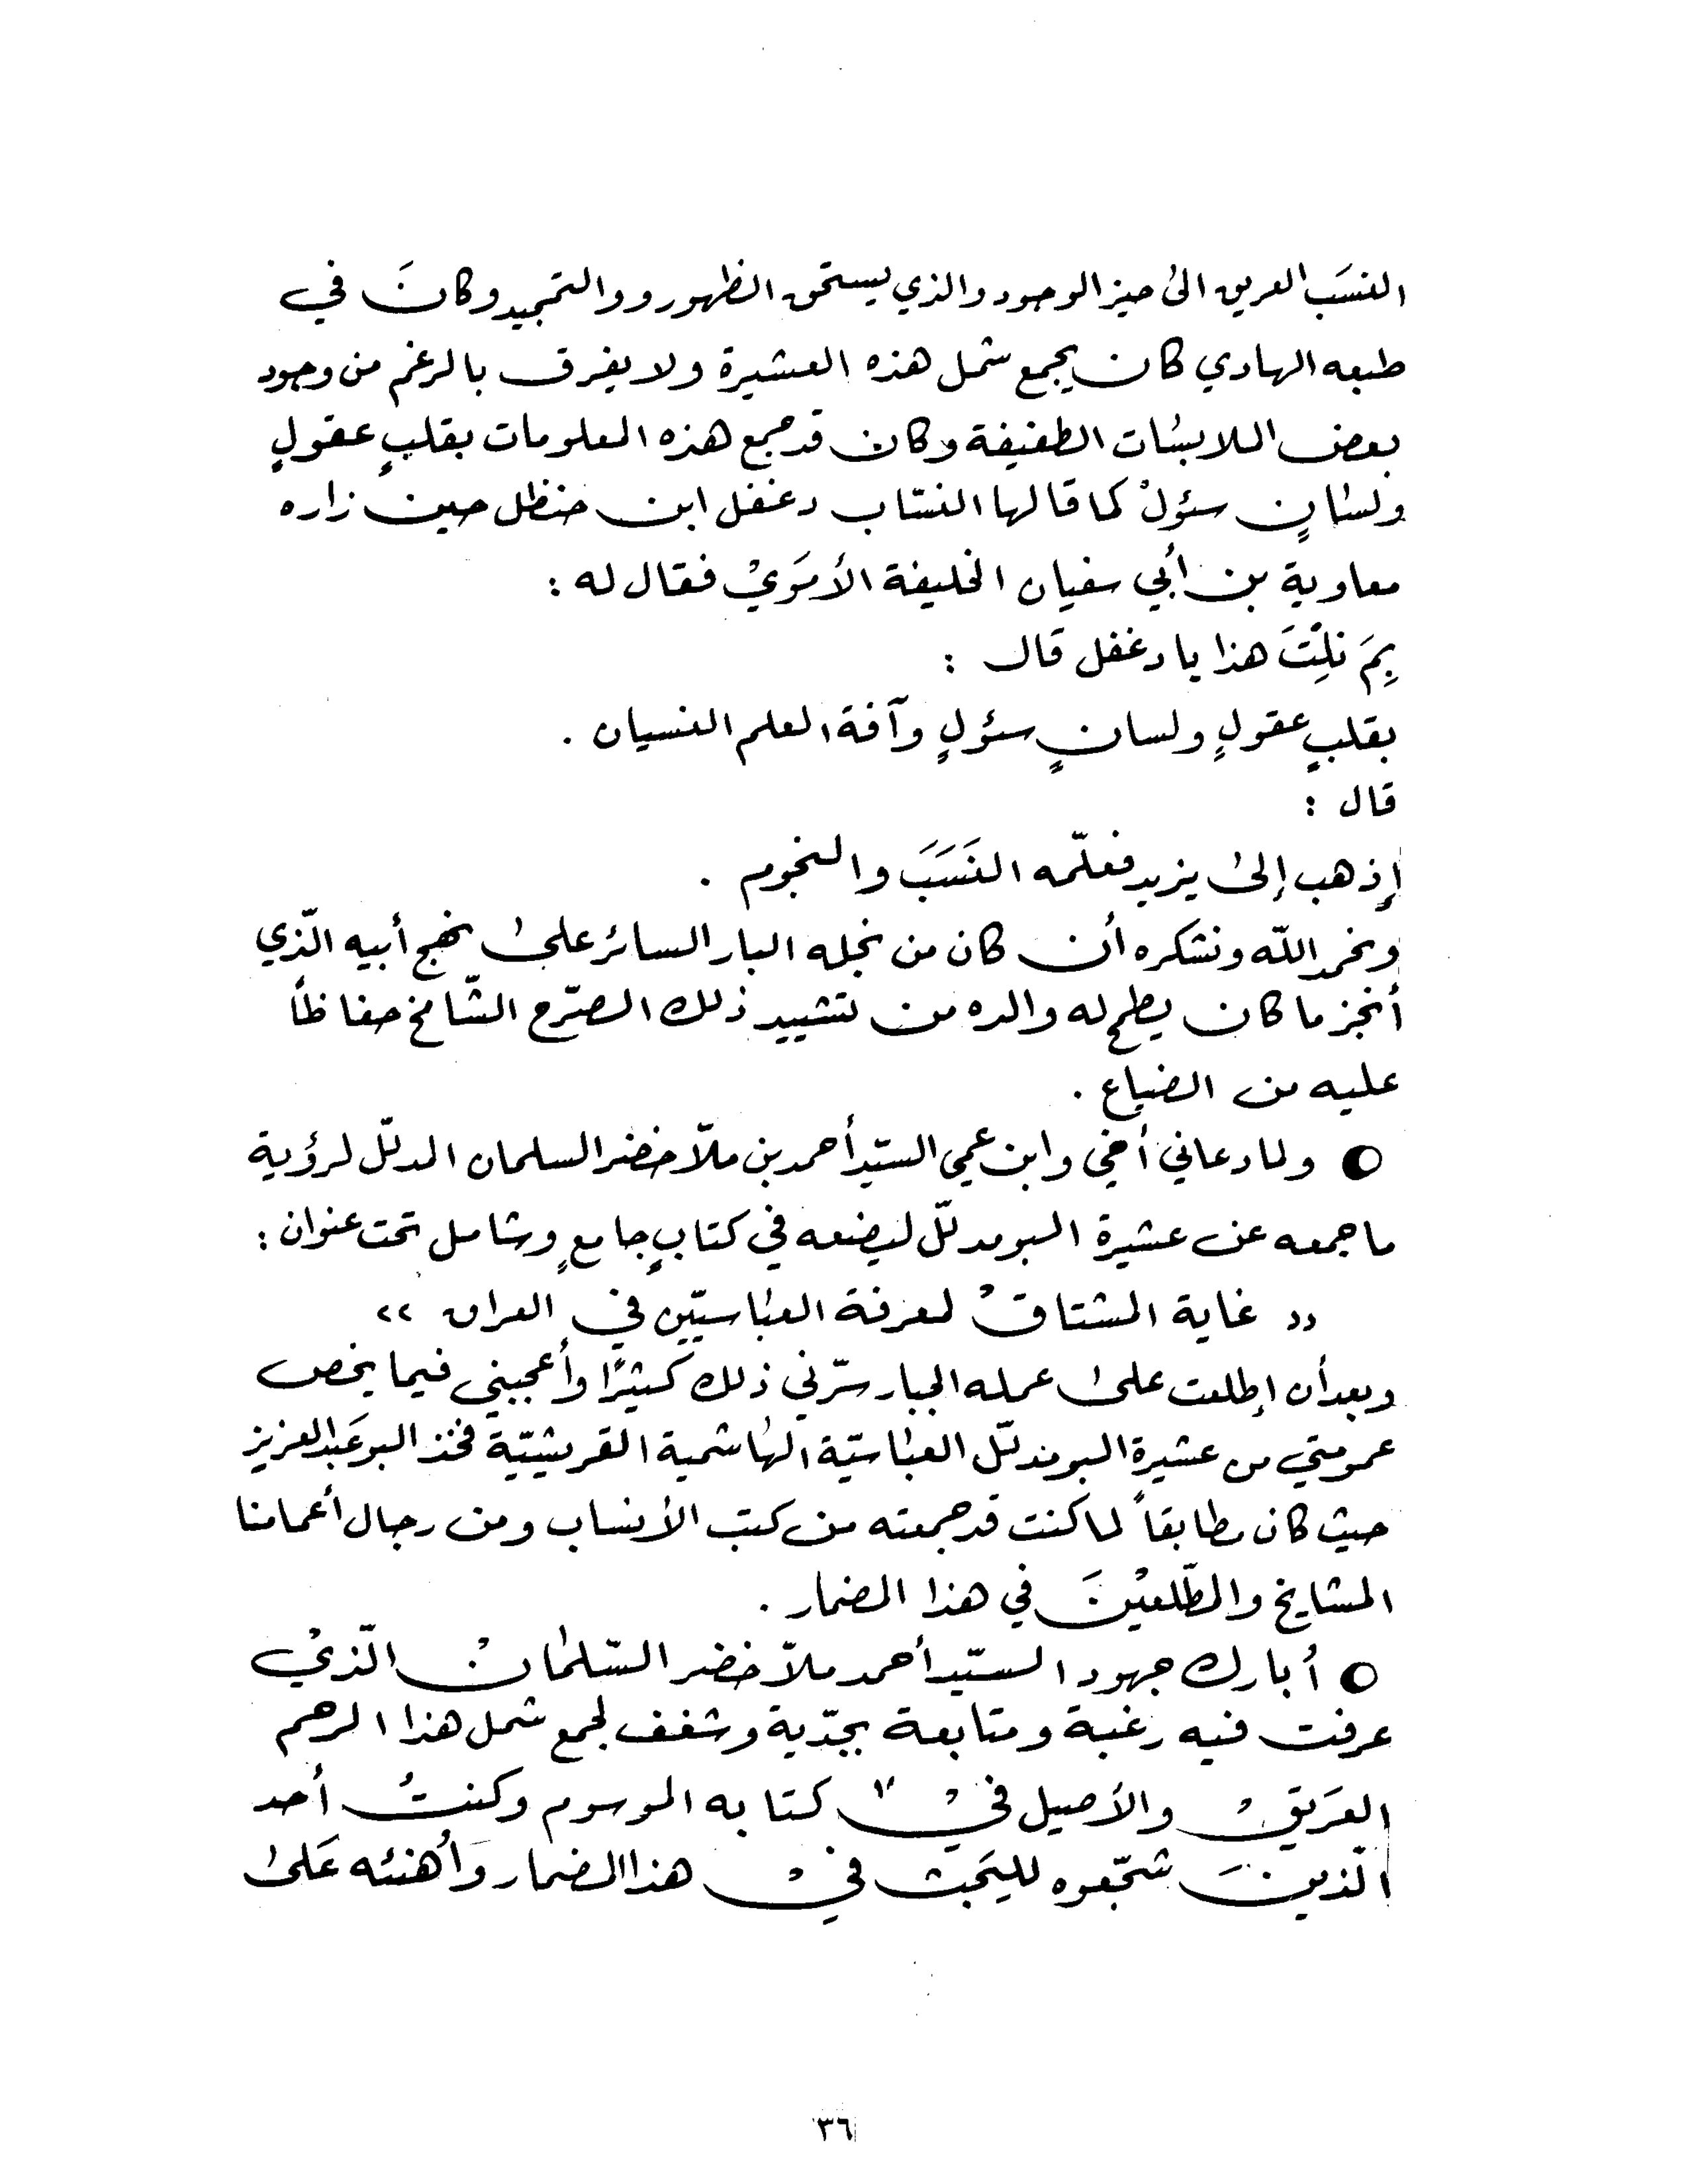 النسَب العريق الى حيز الوجود والذي يستحق الظهور ووالتمجيد وكانَ في
طبعه الهادي كان يجمع شمل هذه العشيرة ولا يفرق بالرغم من وجود
بعض الملابسات الطفيفة وكان قد جمع هذه المعلومات بقلبٍ عقولٍ
ولسانٍ سئولْ كما قالها النسّاب دغفل ابن حنظل حين زاره
معاوية بن أبي سفيان الخليفة الأمَويْ فقال له :
بِمَ نلِتَ هذا يا دغفل قال :
بقلبٍ عقولٍ ولسانٍ سئولٍ وآفة العلم النسيان .
قال :
إذهب إلى يزيد فعلّمه النَسَبَ والنجوم .
ونحمد اللّه ونشكره أن كان من نجله البار السائر على نهج أبيه الّذي
أنجز ما كان يطمح له والده من تشييد ذلك الصرّح الشّامخ حفاظاً
عليه من الضياع .
● ولما دعاني أخي وابن عمي السيّد أحمد بن ملاّ خضر السلمان المدلّل لرؤية
ما جمعه عن عشيرة البو مدلّل ليضعه في كتابٍ جامعٍ وشامل تحت عنوان :
(( غاية المشتاقْ لمعرفة العباسيّين في العراق ))
وبعد أن إطلعت على عمله الجبار سرّني ذلك كثيرًا وأعجبني فيما يخص
عمومتي من عشيرة البو مدلّل العباسيّة الهاشمية القريشيّة فخذ البو عَبد العزيز
حيث كان مطابقاً لما كنت قد جمعته من كتب الأنساب ومن رجال أعمامنا
المشايخ والمطّلعيْنَ في هذا المضمار .
● أُبارك جهود السيّد أحمد ملاّ خضر السّلمانْ الّذيْ
عرفت فيه رغبة ومتابعة بجدّية وشغف لجمع شمل هذا الرحم
العَريقْ والأصيل فيْ كتابه الموسوم وكنتُ أحد
الّذينَ شجّعوه لليَحث فيْ هذا المضمار وَأُهنئه عَلىٰ
٣٦